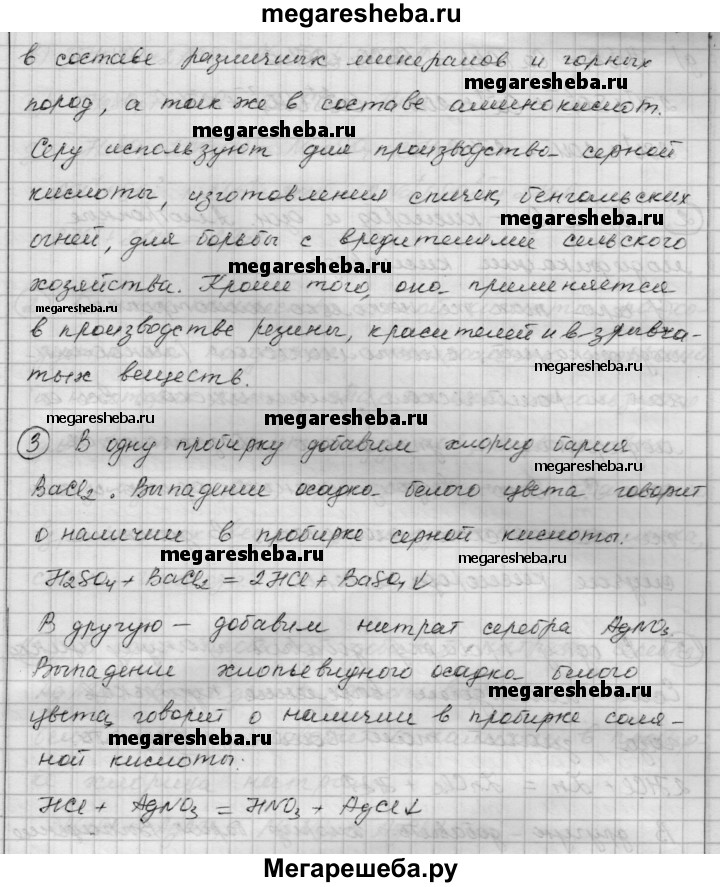 megaresheba.ru
в составе различных минералов и горных
megaresheba.ru
пород, а так же в составе аминокислот.
megaresheba.ru
Серу используют для производства серной
кислоты, изготовления спичек, бенгальских
megaresheba.ru
огней, для борьбы с вредителями сельского
megaresheba.ru
хозяйства. Кроме того, она применяется
megaresheba.ru
в производстве резины, красителей и в-зрывча-
megaresheba.ru
тых веществ.
megaresheba.ru megaresheba.ru
3 В одну пробирку добавим хлорид бария
megaresheba.ru
BaCl2. Выпадение осадка белого цвета говорит
о наличии в пробирке серной кислоты:
megaresheba.ru megaresheba.ru
H2SO4 + BaCl2 = 2HCl + BaSO4↓
В другую – добавим нитрат серебра AgNO3.
Выпадение хлопьевидного осадка белого
megaresheba.ru
цвета говорит о наличии в пробирке соля-
megaresheba.ru
ной кислоты:
HCl + AgNO3 = HNO3 + AgCl↓
megaresheba.ru
Мегарешеба.ру